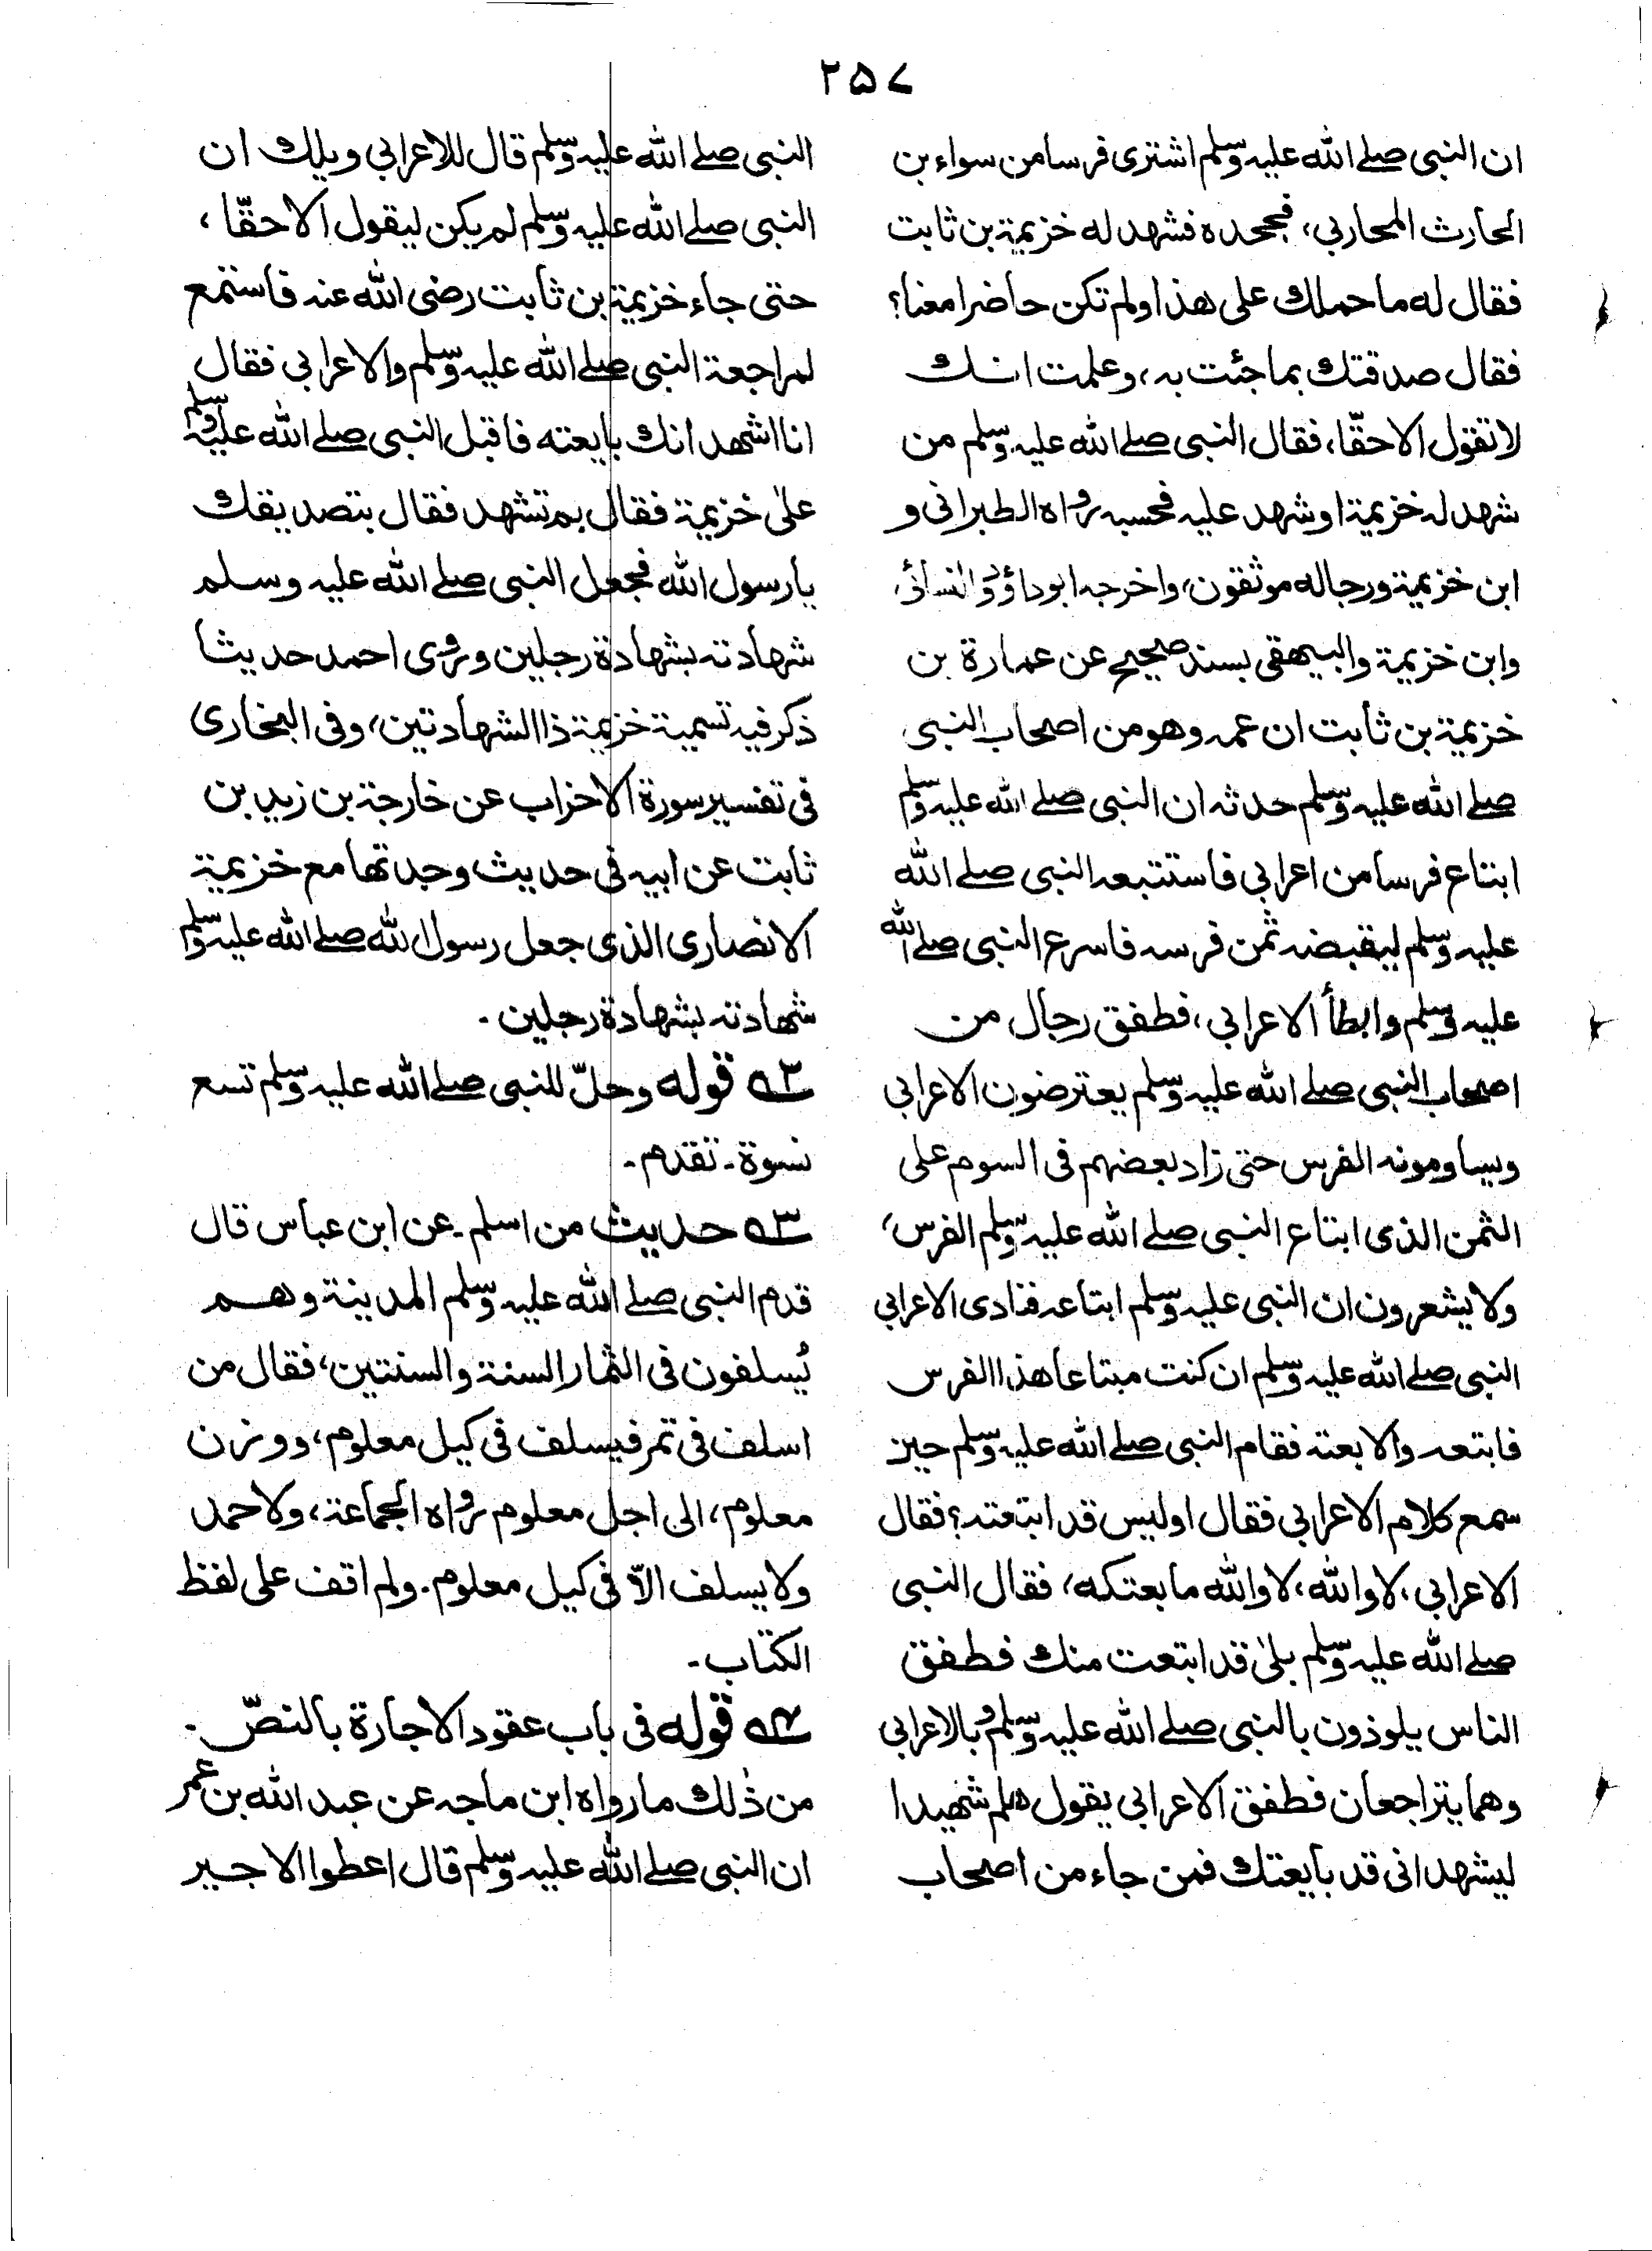 ۲۵۷
ان النبی صلے اللہ علیہ وسلم اشتری فرسا من سواء بن
الحارث المحاربی، فجحدہ فشہد لہ خزیمۃ بن ثابت
فقال لہ ما حملك علی ھذا ولم تکن حاضرا معنا؟
فقال صدقتك بما جئت بہ، وعلمت انك
لا تقول الا حقّا، فقال النبی صلے اللہ علیہ وسلم من
شہد لہ خزیمۃ او شہد علیہ فحسبہ رواہ الطبرانی و
ابن خزیمۃ ورجالہ موثقون، واخرجہ ابوداؤد والنسائی،
وابن خزیمۃ والبیہقی بسند صحیح عن عمارۃ بن
خزیمۃ بن ثابت ان عمہ وھو من اصحاب النبی
صلے اللہ علیہ وسلم حدثہ ان النبی صلے اللہ علیہ وسلم
ابتاع فرسا من اعرابی فاستتبعہ النبی صلے اللہ
علیہ وسلم لیقبضہ ثمن فرسہ فاسرع النبی صلے اللہ
علیہ وسلم وابطأ الاعرابی، فطفق رجال من
اصحاب النبی صلے اللہ علیہ وسلم یعترضون الاعرابی
ویساومونہ الفرس حتی زاد بعضہم فی السوم علی
الثمن الذی ابتاع النبی صلے اللہ علیہ وسلم الفرس،
ولا یشعرون ان النبی علیہ وسلم ابتاعہ فنادی الاعرابی
النبی صلے اللہ علیہ وسلم ان کنت مبتاعا ھذا الفرس
فابتعہ والا بعتہ فقام النبی صلے اللہ علیہ وسلم حین
سمع کلام الاعرابی فقال اولیس قد ابتعتہ؟ فقال
الاعرابی، لا واللہ، لا واللہ ما بعتکہ، فقال النبی
صلے اللہ علیہ وسلم بلیٰ قد ابتعت منك فطفق
الناس یلوذون بالنبی صلے اللہ علیہ وسلم وبالاعرابی
وھما یتراجعان فطفق الاعرابی یقول ھلم شہیدا
لیشہد انی قد بایعتك فمن جاء من اصحاب
النبی صلے اللہ علیہ وسلم قال للاعرابی ویلك ان
النبی صلے اللہ علیہ وسلم لم یکن لیقول الا حقّا،
حتی جاء خزیمۃ بن ثابت رضی اللہ عنہ فاستمع
لمراجعۃ النبی صلے اللہ علیہ وسلم والاعرابی فقال
انا اشہد انك بایعتہ فاقبل النبی صلے اللہ علیہ وسلم
علیٰ خزیمۃ فقال بم تشہد فقال بتصدیقك
یا رسول اللہ فجعل النبی صلے اللہ علیہ وسلم
شہادتہ بشہادۃ رجلین وروی احمد حدیثا
ذکر فیہ تسمیۃ خزیمۃ ذا الشہادتین، وفی البخاری
فی تفسیر سورۃ الاحزاب عن خارجۃ بن زید بن
ثابت عن ابیہ فی حدیث وجدتھا مع خزیمۃ
الانصاری الذی جعل رسول اللہ صلے اللہ علیہ وسلم
شھادتہ بشہادۃ رجلین ۔
۵۲ قولہ وحلّ للنبی صلے اللہ علیہ وسلم تسع
نسوۃ۔ تقدم۔
۵۳ حدیث من اسلم۔ عن ابن عباس قال
قدم النبی صلے اللہ علیہ وسلم المدینۃ وھم
یُسلفون فی الثمار السنۃ والسنتین، فقال من
اسلف فی تمر فیسلف فی کیل معلوم، ووزن
معلوم، الی اجل معلوم رواہ الجماعۃ، ولاحمد
ولا یسلف الاّ فی کیل معلوم۔ ولم اقف علی لفظ
الکتاب۔
۵۴ قولہ فی باب عقود الاجارۃ بالنصّ۔
من ذٰلك ما رواہ ابن ماجہ عن عبد اللہ بن عمر
ان النبی صلے اللہ علیہ وسلم قال اعطوا الاجیر